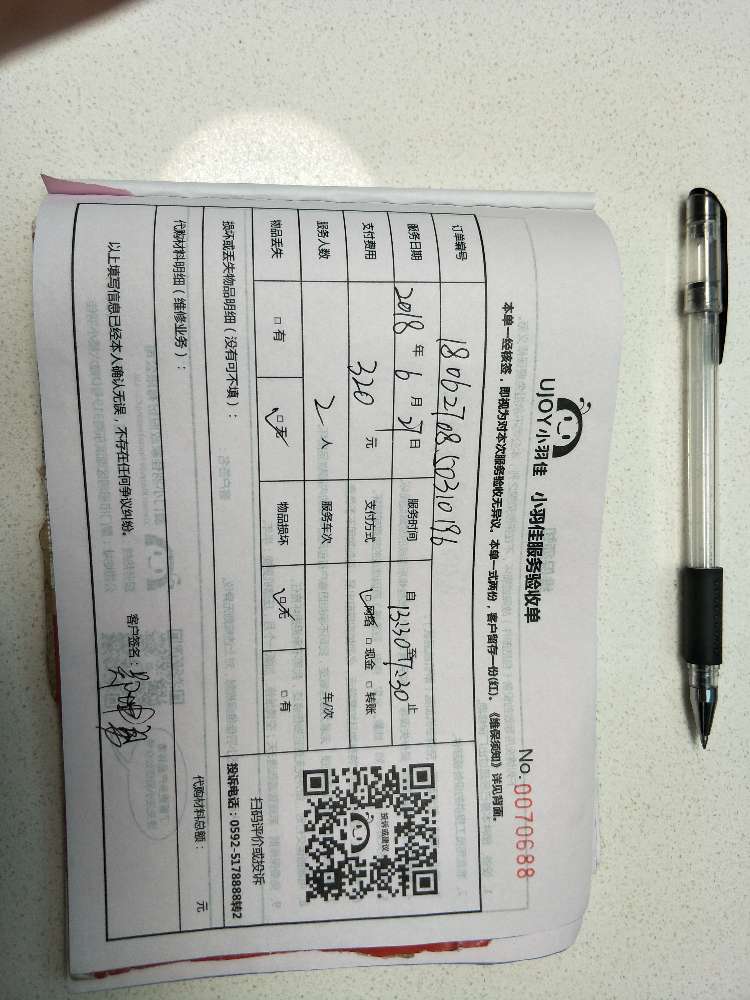 UJOY小羽佳 小羽佳服务验收单
No. 0070688
本单一经核签，即视为对本次服务验收无异议。本单一式两份，客户留存一份(红)。《维保须知》详见背面。
订单编号 1806270850310196
服务日期 2018年6月27日 服务时间 自13:30至17:30止
支付费用 320元 支付方式 □网络 □现金 □转账
服务人数 2人 服务车次 车/次
物品丢失 □有 □无 物品损坏 □无 □有
投诉或建议
扫码评价或投诉
投诉电话：0592-5178888转2
损坏或丢失物品明细（没有可不填）：
代购材料明细（维修业务）： 代购材料总额： 元
以上填写信息已经本人确认无误，不存在任何争议纠纷。 客户签名：